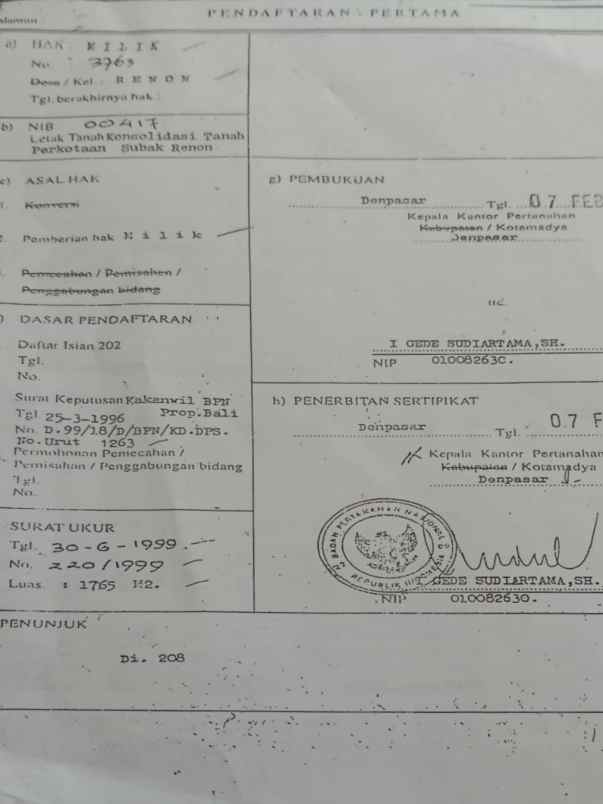 PENDAFTARAN PERTAMA
Halaman
a) HAK MILIK
No. 3763
Desa / Kel. : RENON
Tgl. berakhirnya hak :
b) NIB 00417
Letak Tanah Konsolidasi Tanah
Perkotaan Subak Renon
c) ASAL HAK
Konversi
Pemberian hak Milik
Pemecahan / Pemisahan /
Penggabungan bidang
) DASAR PENDAFTARAN
Daftar Isian 202
Tgl.
No.
Surat Keputusan Kakanwil BPN
Tgl. 25-3-1996 Prop.Bali
No. D.99/18/D/BPN/KD.DPS.
No.Urut 1263
Permohonan Pemecahan /
Pemisahan / Penggabungan bidang
Tgl.
No.
SURAT UKUR
Tgl. 30-6-1999.
No. 220/1999
Luas : 1765 M2.
g) PEMBUKUAN
Denpasar Tgl. 07 FEB
Kepala Kantor Pertanahan
Kabupaten / Kotamadya
Denpasar
ttd.
I GEDE SUDIARTAMA,SH.
NIP 010082630.
h) PENERBITAN SERTIPIKAT
Denpasar Tgl. 07 F
Kepala Kantor Pertanahan
Kabupaten / Kotamadya
Denpasar
BADAN PERTANAHAN NASIONAL
REPUBLIK INDONESIA
I GEDE SUDIARTAMA,SH.
NIP 010082630.
PENUNJUK
Di. 208